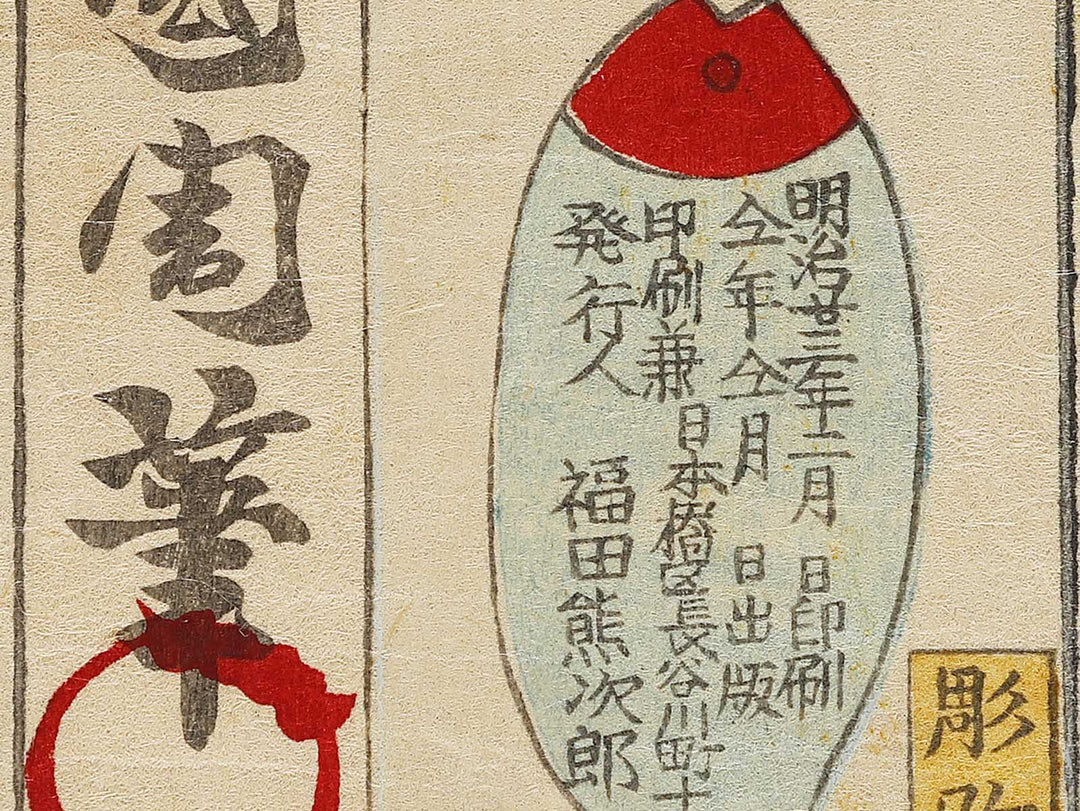 明治廿三年十二月 日印刷
仝年仝月 日出版
印刷兼 日本橋区長谷川町十
発行人 福田熊次郎
彫
國周筆